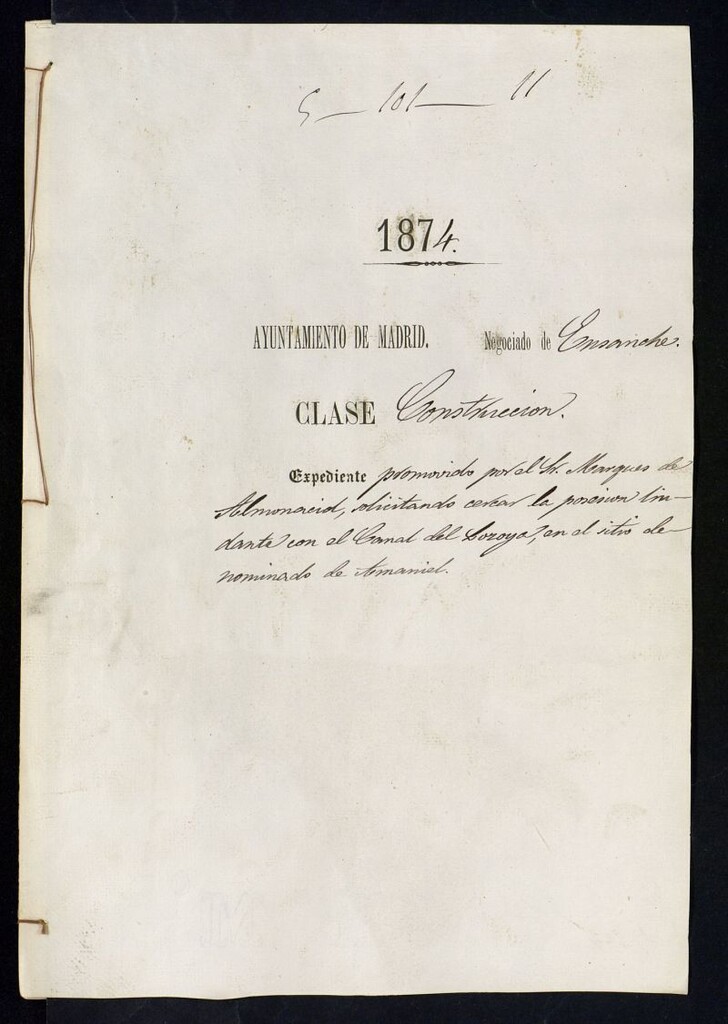 5 — 101 — 11
1874.
AYUNTAMIENTO DE MADRID. Negociado de Ensanche.
CLASE Construccion.
Expediente promovido por el Sr. Marques de
Almonacid, solicitando cercar la posesion lin-
dante con el Canal del Lozoya, en el sitio de-
nominado de Amaniel.